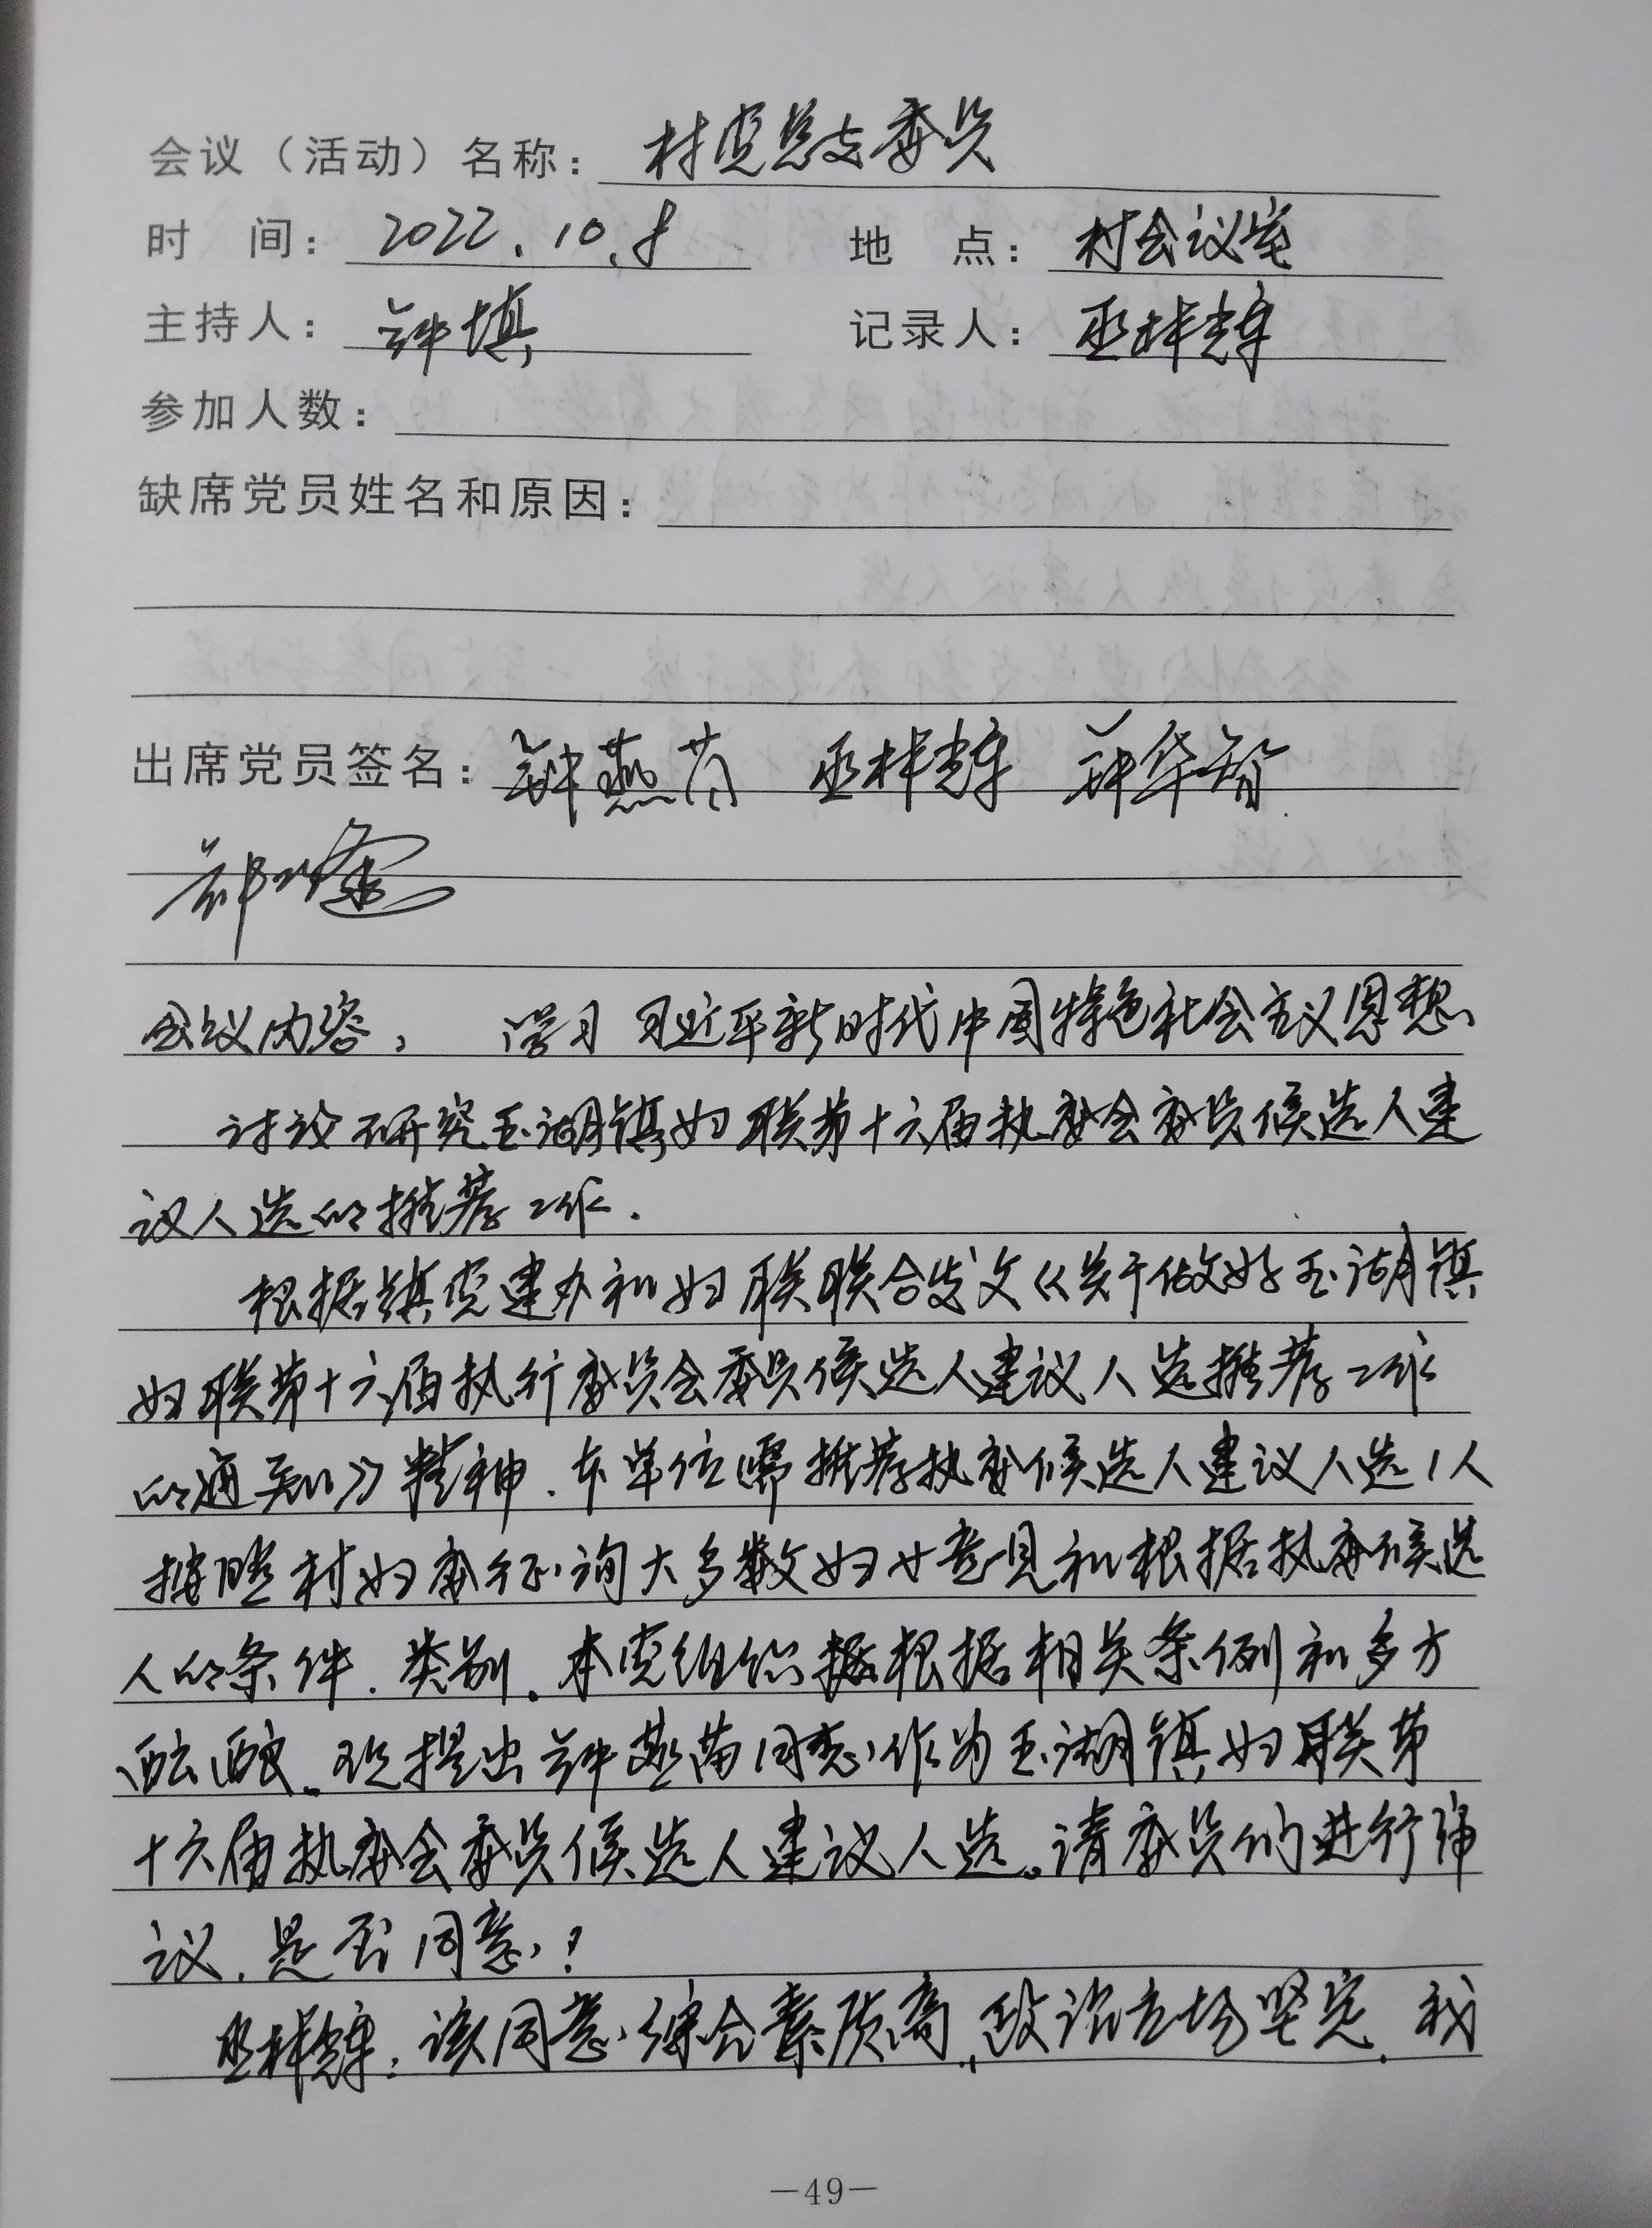 会议（活动）名称： 村党总支委员
时 间： 2022.10.8 地 点： 村会议室
主持人： 钟填 记录人： 巫梓辉
参加人数：
缺席党员姓名和原因：
出席党员签名： 钟燕苗 巫梓辉 钟华智
会议内容： 学习习近平新时代中国特色社会主义思想、
讨论研究玉湖镇妇联第十六届执委会委员候选人建
议人选的推荐工作.
根据镇党建办和妇联联合发文《关于做好玉湖镇
妇联第十六届执行委员会委员候选人建议人选推荐工作
的通知》精神.本单位需推荐执委候选人建议人选1人
村妇委征询大多数妇女意见和根据执委候选
人的条件.类别.本党组织根据相关条例和多方
酝酿.现提出钟燕苗同志作为玉湖镇妇联第
十六届执委会委员候选人建议人选。请委员们进行审
议.是否同意？
巫梓辉：该同意综合素质高,政治立场坚定.我
—49—